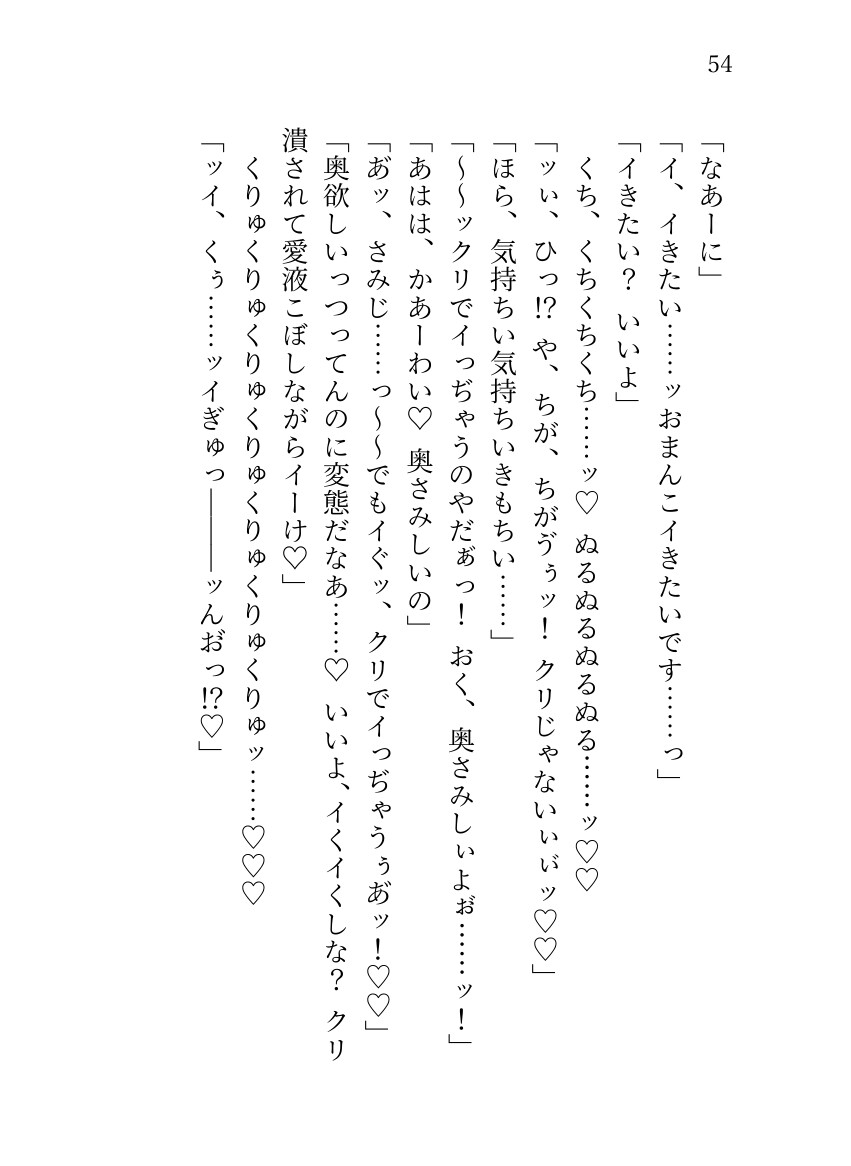 54
「なあーに」
「イ、イきたい……ッおまんこイきたいです……っ」
「イきたい？　いいよ」
くち、くちくちくち……ッ♡　ぬるぬるぬるぬる……ッ♡♡
「ッぃ、ひっ⁉　や、ちが、ちがゔぅッ！　クリじゃないぃぃ゙ッ♡♡」
「ほら、気持ちい気持ちいきもちい……」
「～～ックリでイっぢゃうのやだぁ゙っ！　おく、奥さみしぃよぉ゙……ッ！」
「あはは、かあーわい♡　奥さみしいの」
「あ゙ッ、さみじ……っ～～でもイぐッ、クリでイっぢゃうぅあ゙ッ！♡♡」
「奥欲しいっつってんのに変態だなあ……♡　いいよ、イくイくしな？　クリ
潰されて愛液こぼしながらイーけ♡」
くりゅくりゅくりゅくりゅくりゅくりゅくりゅッ……♡♡♡
「ッイ、くぅ……ッイぎゅっ――――ッんお゙っ⁉♡」